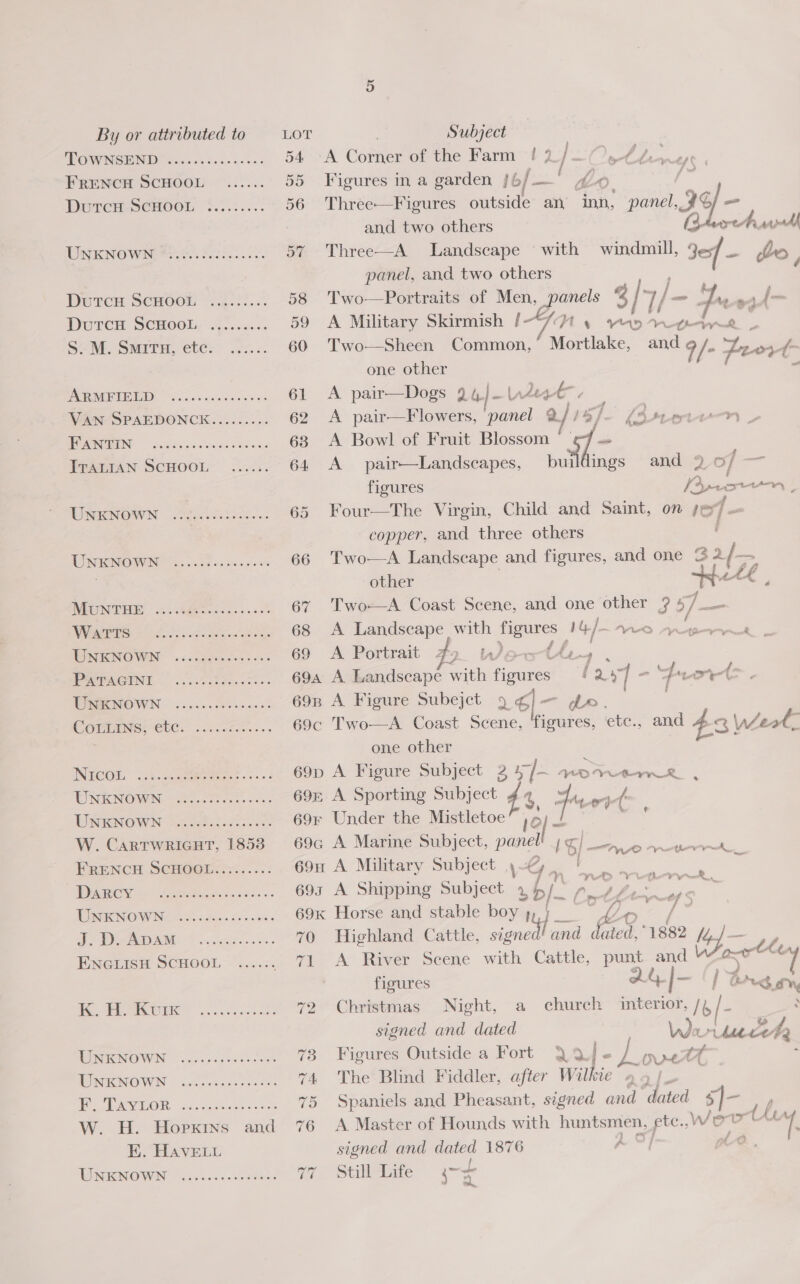 5
By or attributed to LOT Subject
TOWNSEND ............... 54 A Corner of the Farm 12/-
FRENCH SCHOOL ...... 55 Figures in a garden 16/- do
DUTCH SCHOOL ......... 56 Three—Figures outside an inn, panel,
and two others
UNKNOWN ............... 57 Three—A Landscape with windmill, 30/- do
panel, and two others
DUTCH SCHOOL ......... 58 Two—Portraits of Men, panels
DUTCH SCHOOL ......... 59 A Military Skirmish
S. M. SMITH, etc. ...... 60 Two—Sheen Common, Mortlake, and
one other
ARMFIELD ............... 61 A pair—Dogs 24/- West
VAN SPAEDONCK......... 62 A pair—Flowers, panel
FANTIN ............... 63 A Bowl of Fruit Blossom
ITALIAN SCHOOL ...... 64 A pair—Landscapes, buildings and
figures Brown
UNKNOWN ............... 65 Four—The Virgin, Child and Saint, on
copper, and three others
UNKNOWN ............... 66 Two—A Landscape and figures, and one 32/-
other Hill
MUNTHE ............... 67 Two—A Coast Scene, and one other
WATTS ............... 68 A Landscape with figures 14/- no name
UNKNOWN ............... 69 A Portrait Worthey
PATAGINI ............... 69A A Landscape with figures
UNKNOWN ............... 69B A Figure Subejct do.
COLLINS, etc. ............ 69C Two—A Coast Scene, figures, etc., and West
one other
NICOL ............... 69D A Figure Subject no name
UNKNOWN ............... 69E A Sporting Subject
UNKNOWN ............... 69F Under the Mistletoe 10/-
W. CARTWRIGHT, 1853 69G A Marine Subject, panel no name
FRENCH SCHOOL......... 69H A Military Subject no name
DARCY ............... 69J A Shipping Subject
UNKNOWN ............... 69K Horse and stable boy do
J. D. ADAM ............ 70 Highland Cattle, signed and dated, 1882
ENGLISH SCHOOL ...... 71 A River Scene with Cattle, punt and
figures 24/-
K. H. KUIK ............ 72 Christmas Night, a church interior,
signed and dated
UNKNOWN ............... 73 Figures Outside a Fort 22/- Lovett
UNKNOWN ............... 74 The Blind Fiddler, after Wilkie 22/-
F. TAYLOR ............... 75 Spaniels and Pheasant, signed and dated
W. H. HOPKINS and 76 A Master of Hounds with huntsmen, etc., Worthey
E. HAVELL signed and dated 1876 do.
UNKNOWN ............... 77 Still Life